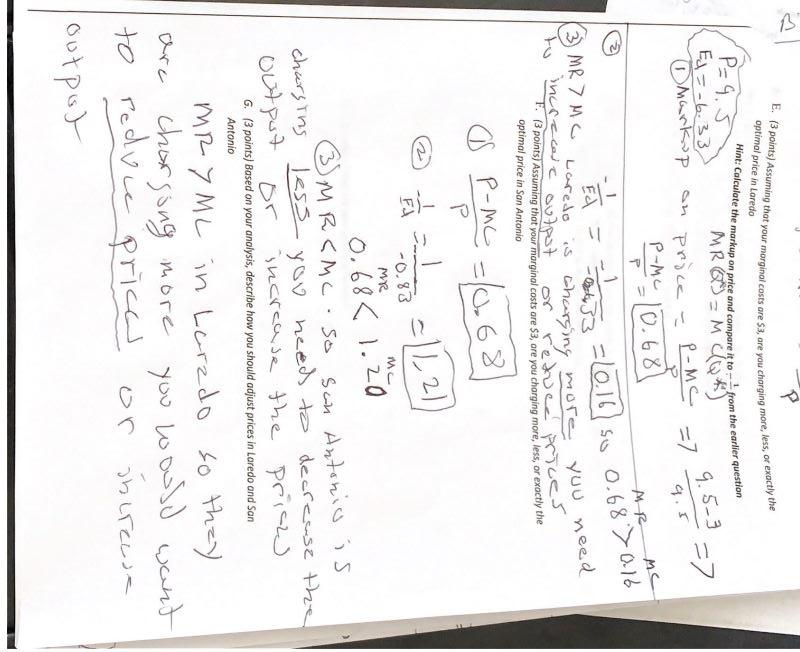 B)
P
E. (3 points) Assuming that your marginal costs are $3, are you charging more, less, or exactly the
optimal price in Laredo
Hint: Calculate the markup on price and compare it to -1/Ed from the earlier question
P=9.5
Ed=-6.33
MR(Q*)=MC(Q*)
① Markup on price = P-MC/P => 9.5-3/9.5 =>
P-MC/P = 0.68
② -1/Ed = -1/-6.33 = 0.16 so 0.68 > 0.16
MR MC
③ MR > MC Laredo is charging more you need
to increase output or reduce prices
F. (3 points) Assuming that your marginal costs are $3, are you charging more, less, or exactly the
optimal price in San Antonio
① P-MC/P = 0.68
② -1/Ed = -1/-0.83 = 1.21
MR MC
0.68 < 1.20
③ MR < MC. so San Antonio is
charging less you need to decrease the
output or increase the prices
G. (3 points) Based on your analysis, describe how you should adjust prices in Laredo and San
Antonio
MR > MC in Laredo so they
are charging more you would want
to reduce prices or increase
output